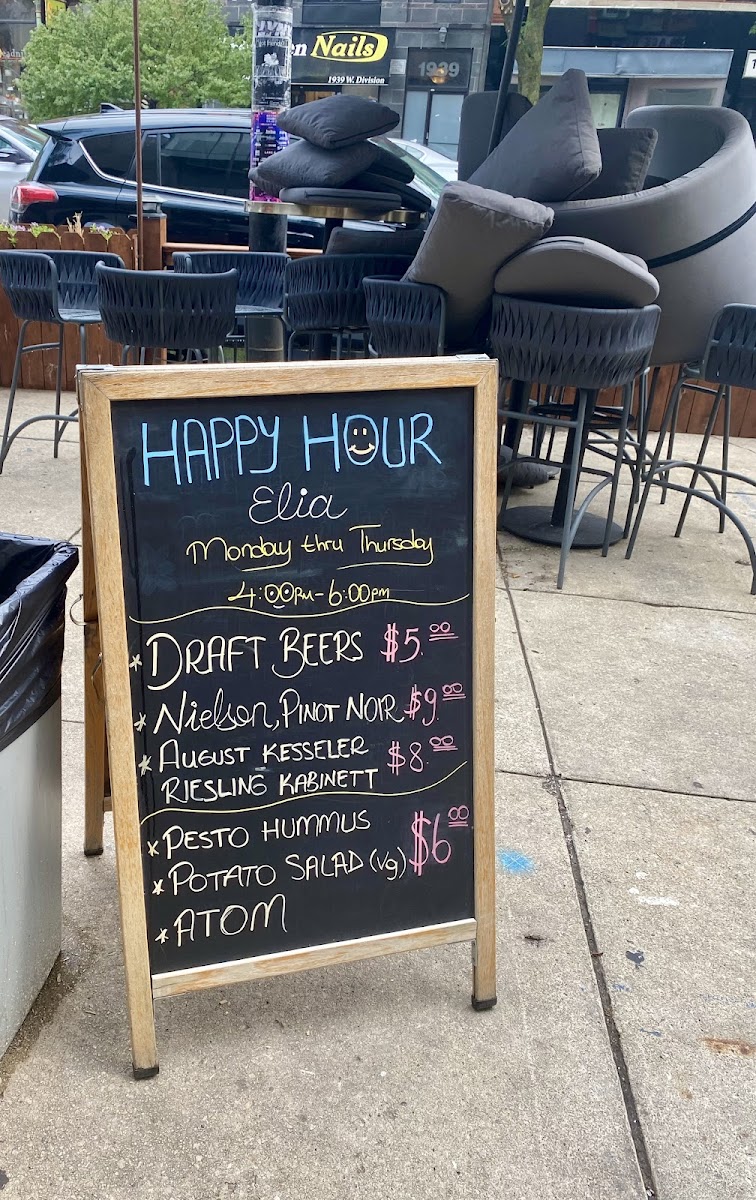 got friends?
en Nails
1939 W. Division
1939
HAPPY HOUR
Elia
Monday thru Thursday
4:00PM-6:00pm
* DRAFT BEERS $5.00
* Nielson, PINOT NOIR $9.00
* AUGUST KESSELER $8.00
RIESLING KABINETT
* PESTO HUMMUS $6.00
* POTATO SALAD (vg)
* ATOM